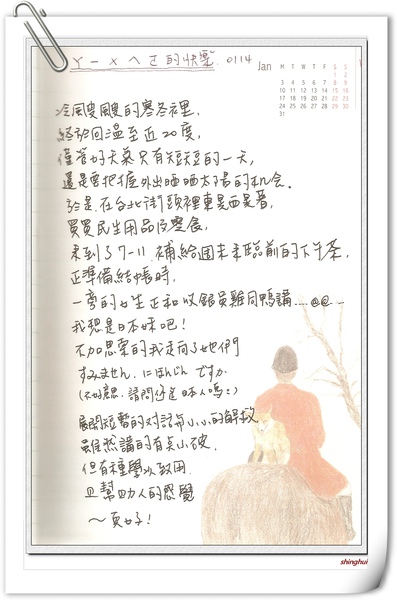 ㄚ一ㄨㄟˋ的快樂 0114
Jan
M T W T F S S
1 2
3 4 5 6 7 8 9
10 11 12 13 14 15 16
17 18 19 20 21 22 23
24 25 26 27 28 29 30
31
冷颼颼的寒冬裡,
終於回溫至近20度,
僅管好天氣只有短短的一天,
還是要把握外出曬曬太陽的机会.
於是在台北街頭裡東晃西晃著,
買買民生用品及零食,
來到了7-11 補給週末來臨前的下午茶,
正準備結帳時,
一旁的女生正和收銀員雞同鴨講....@@...
我想是日本妹吧!
不加思索的我走向了她們
すみません. にほんじん ですか
(不好意思. 請問你是日本人嗎:)
展開短暫的对話与小小的解救
雖然講的有点小破.
但有種學以致用
且幫助人的感覺
~真好!
shinghui